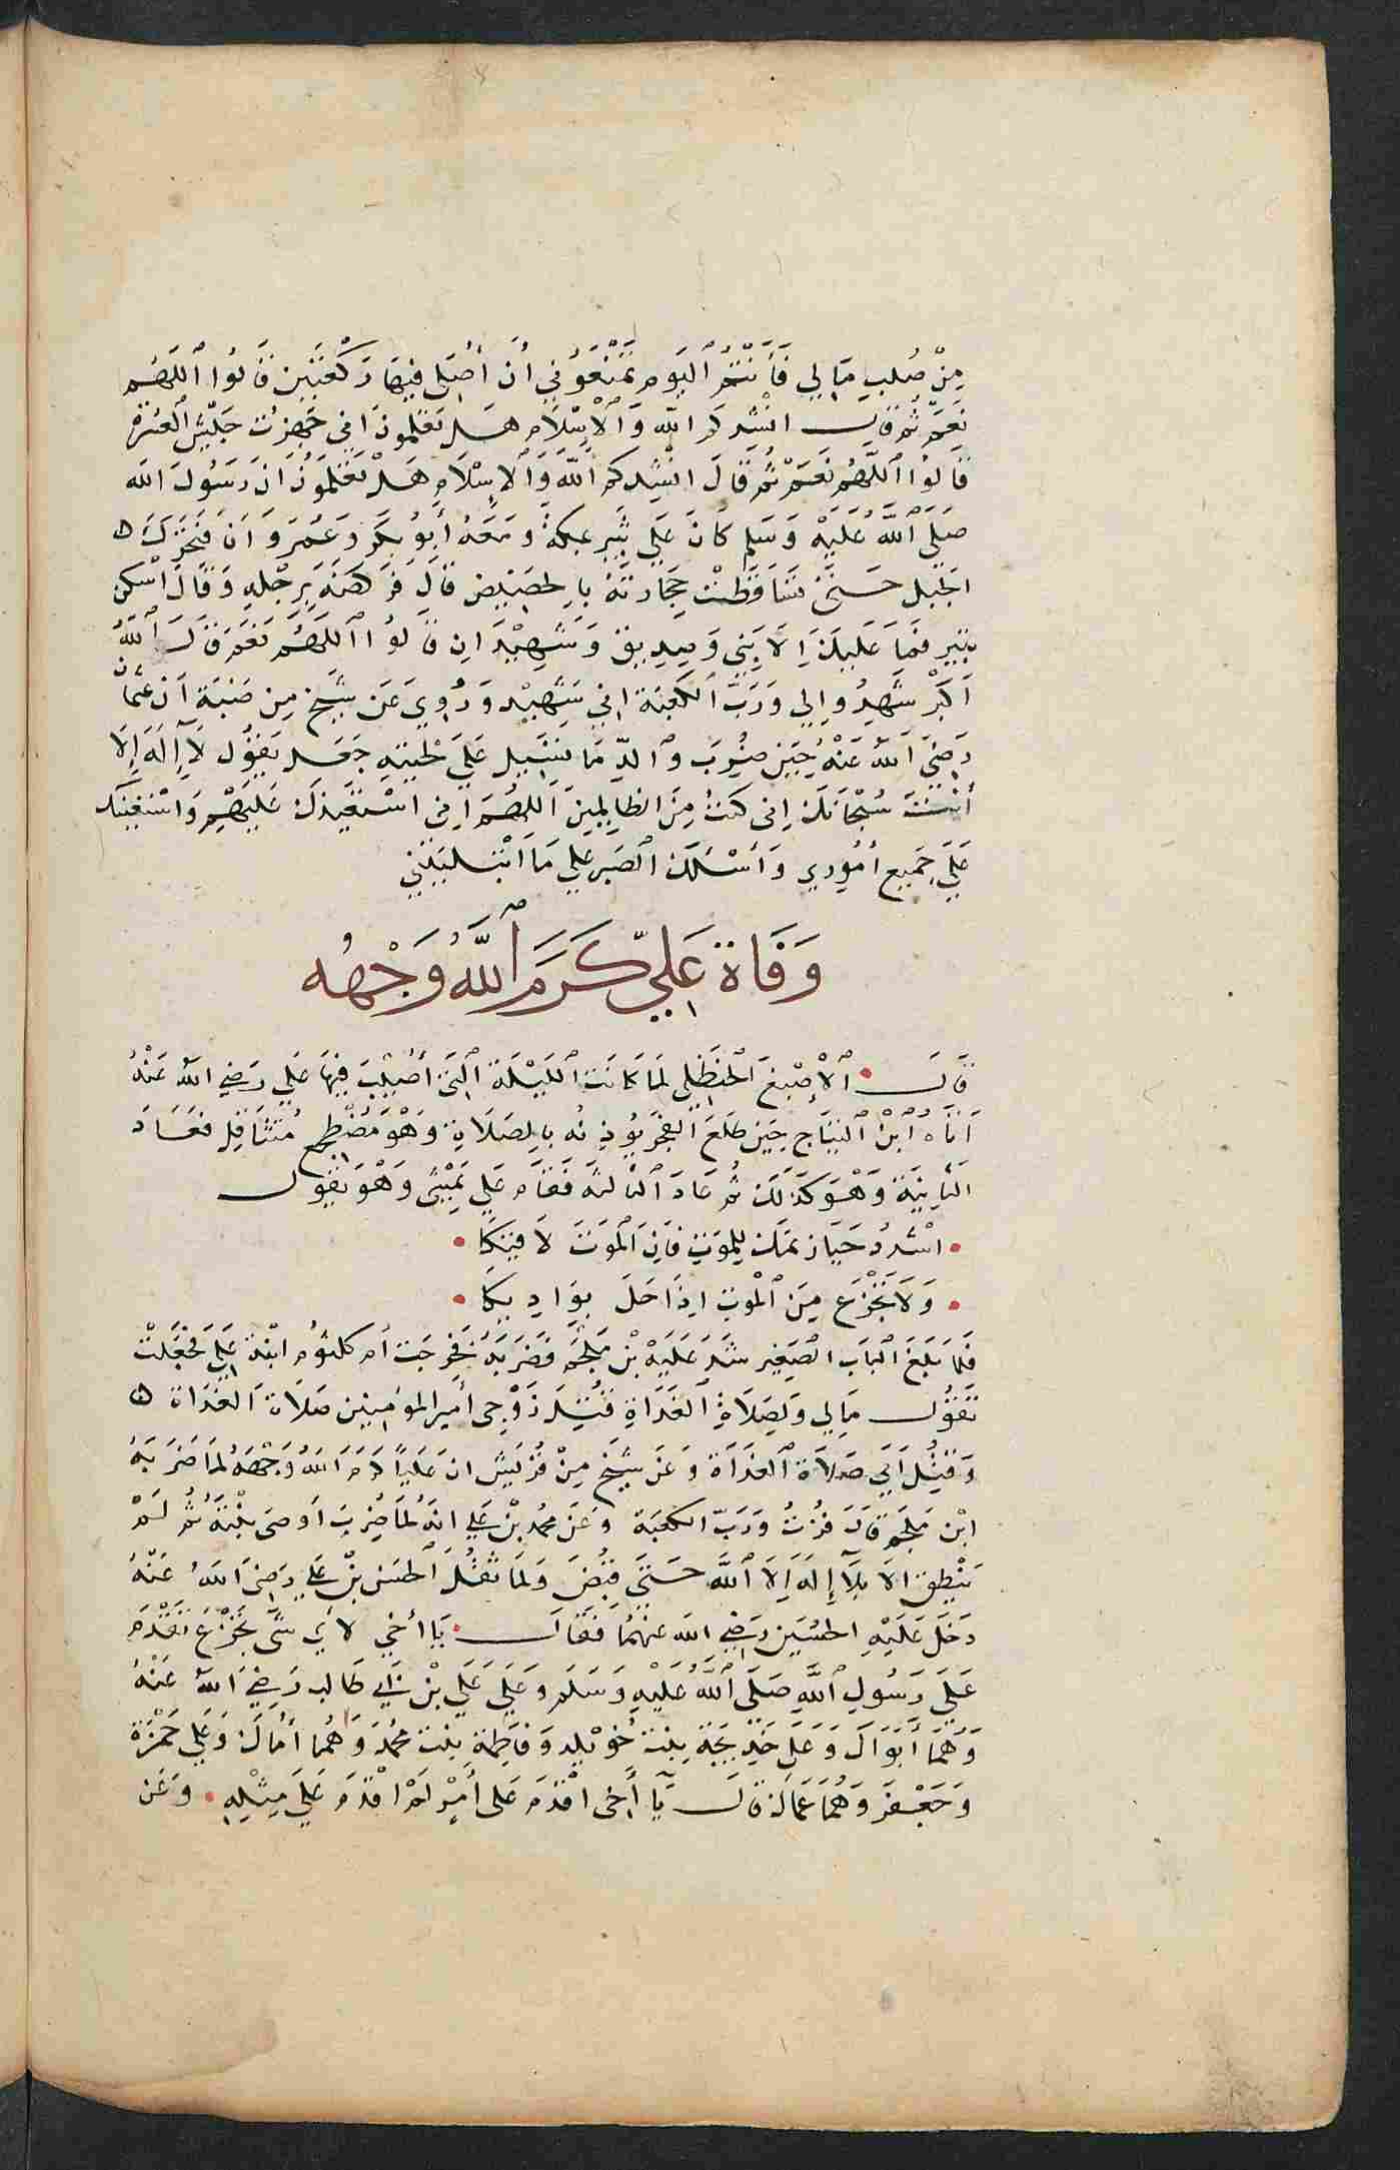 مِنْ صُلبِ مَالِي فَأَنْتُمُ ٱليَوم تَمْنَعُونِي أُن أُصَلِي فِيهَا رَكْعَتَيْنِ قَالوُا ٱللَهُم
نَعَمْ ثم قال انشدكم الله وَٱلاسْلَام هل تَعْلمونَ اني جهزت جَيْش ٱلعُسْرَة
قَالوُا ٱللَّهُم نَعَمْ ثُم قَالَ انشدكم اللَّهَ وَٱلاسْلَامِ هَلْ تَعْلَموُنَ انَ رَسُولَ الله
صَلَى ٱللَّهُ عَلَيْهِ وَسَلم كَانَ عَلي ثَبِير بمكةَ وَمَعَهُ أَبوُ بكَر وَعُمَرَ وَانَا فَتَحَرَّكَ
الجَبل حَتَى تَسَاقَطَتْ حِجَارَتَهُ بالحضيض قَالَ فَرَكَضَهُ بِرجْلهِ وَقَالَ اسْكن
ثبير فمَا عَلَيكَ اِلَا نَبِي وَصِدِيق وَشَهِيْدَانِ قَالوُا ٱللَهُم نَعَمَ قالَ ٱللَّهُ
اَكبَرْ شَهِدُوا لي وَرَبِّ ٱلكَعبَة اني شَهِيْد وَرُوِيَ عَن شَيْخ مِن ضَبَة اَن عثمان
رَضِيَ ٱللهُ عَنْهُ حِيَن ضُرِبَ وَٱلدِّمَا تَسَيل عَلَى لحْيَتِهِ جَعَل يَقوُل لَا إِلَهَ إِلَا
أَنْتَ سُبْحَانَكَ اِنى كنتُ مِنَ الظالِمِينَ اَللهُمَ اِني اسْتَعِيْذكَ عَلَيهْمِ وَاسْتَعِينك
عَلَى جَمِيع أمُوري وَأَسْئَلكَ ٱلصَبر عَلي مَا ٱبْتَليتَني
وَفَاة عَلِيّ كَرَمَ ٱللَّهُ وَجْههُ
قَالَ ٱلأَصْبغ الحَنظَلِي لمَا كَانَت ٱللَيْلَة ٱلتَى أُصِيْبَ فِيهَا عَلي رَضِي اللهُ عَنْهُ
اَتَاهُ ٱبنُ ٱلنَبَاج حِيَن طَلَعَ الفجَر يوُذِنُه بالصَلَاةِ وَهْوَ مُضْطجع مُتَثَاقِل فعَادَ
الثَانِيَة وَهْوَ كَذَلكَ ثم عَادَ ٱلثالثة فَقَام عَلي يَمْشِى وَهْوَ يَقول
اشدُد حَيَازيمَكَ للِموَت فَانَ ٱلموَتَ لَاقيكَا
وَلَا تَجْزَع مِنَ ٱلموْت اِذَا حَلَ بوَادِيكَا
فلَما بَلَغَ ٱلبَاب ٱلصَغِير شَدَ عَلَيهْ بْن مَلْجَم فضَرَبَهُ فخَرجَت أم كلثوُم ابْنة عَلي فجَعَلتْ
تَقوُل مَالِي وَلِصَلَاةِ ٱلغَدَاةِ قُتِلَ زَوْجى أمير المؤمِنين صَلَاة اَلغَدَاة
وَقتِل اَبي صَلَاة ٱلغدَاة وَعَن شَيْخ مِنْ قُرَيش ان عَلِيَاً كرم ٱللهُ وَجْهَهُ لمَا ضَرَبَهُ
ابْن مَلْجم قَالَ فزْتُ وَرَبّ الكعَبَة وَعَن محمد بْن عَلي انَهُ لمَا ضُرِبَ اَوصَى بَنِيْه ثُم لمْ
يَنْطِقَ الا بِلَا إِلَهَ إِلَا ٱللَّه حَتى قبُضَ وَلمَا ثقُلَ ٱلحسَن بْن عَلِي رَضِىَ اَللهُ عَنْهُ
دَخَلَ عَلَيْهِ الحسُيَن رَضِي الله عَنهُمَا فقَالَ يَا أَخي لأَي شَى تَجْزَع تَقْدَم
عَلَي رَسُولِ ٱللَّهِ صَلَى ٱللَّهُ عَليْهِ وَسَلَم وَعَلَي عَلَي بْن أَبي طَالب رَضِيَ ٱللهُ عَنْهُ
وَهُمَا أَبَوَاكَ وَعَلَي خَدِيجَة بِنتَ خُوَيْلِد وَفَاطِمَة بِنت مُحمَد وَهُما أُمَاكَ وَعَلي حَمْزَة
وَجَعْفَر وَهُمَا عَمَاكَ قالَ يَا أَخي اقْدَم عَلى أمْرٍ لَمْ اقْدَم عَلي مِثْلِه وَعَن